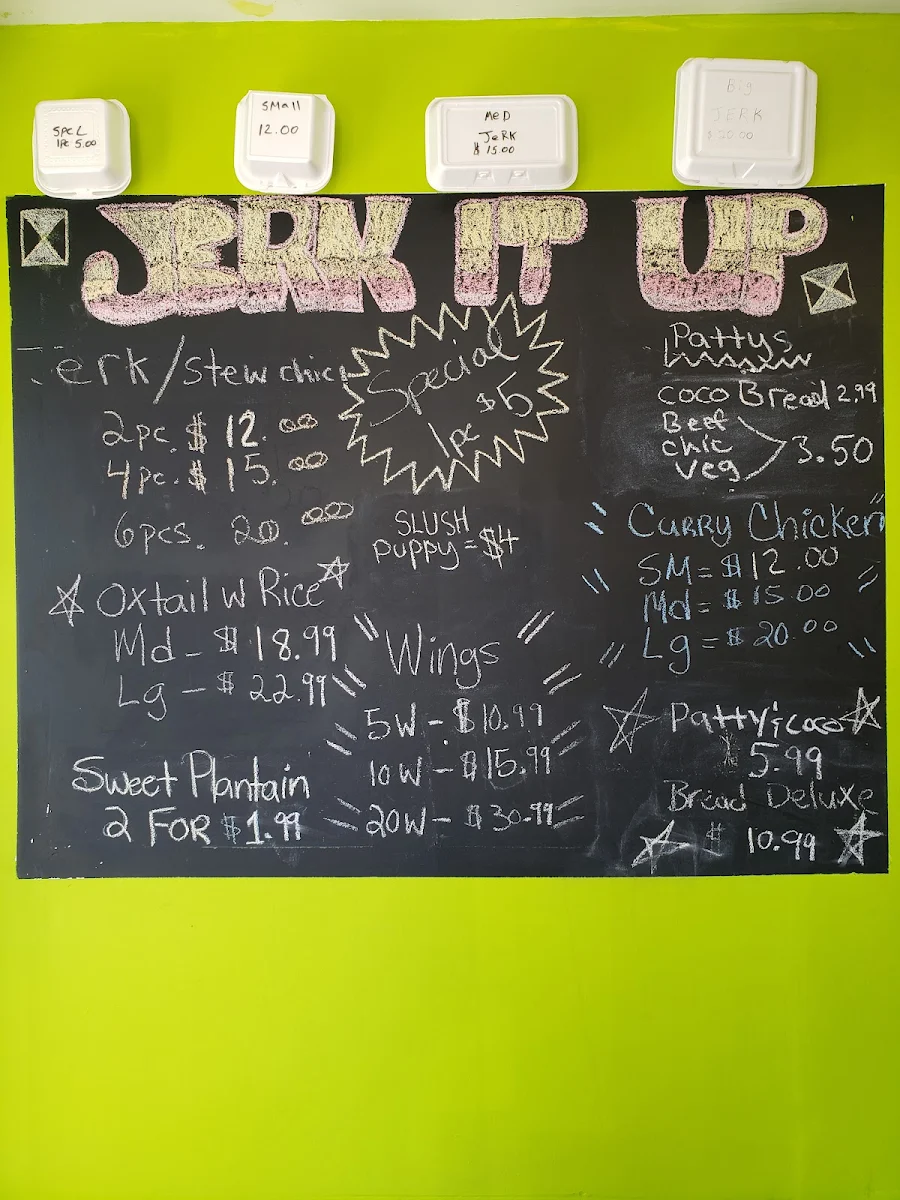 SPCL
1PC 5.00
SMall
12.00
MeD
JeRK
$ 15.00
Big
JERK
$ 20.00
JERK IT UP
erk/stew chic
2pc. $ 12.00
4pc. $ 15.00
6pcs. 20.00
Special
1pc $5
SLUSH
puppy = $4
Pattys
coco Bread 2.99
Beef
chic
veg
3.50
Curry Chicken
SM = $ 12.00
Md = $ 15.00
Lg = $ 20.00
Oxtail W Rice
Md - $ 18.99
Lg - $ 22.99
Wings
5W - $10.99
10W - $15.99
20W - $30.99
Sweet Plantain
2 FOR $1.99
Patty coco
5.99
Bread Deluxe
$ 10.99